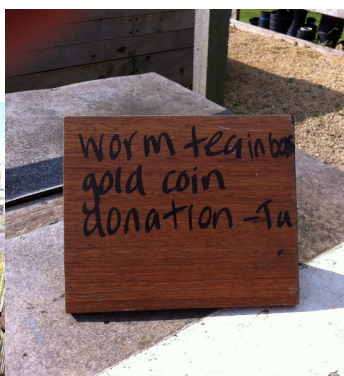 worm tea in box
gold coin
donation - Ta